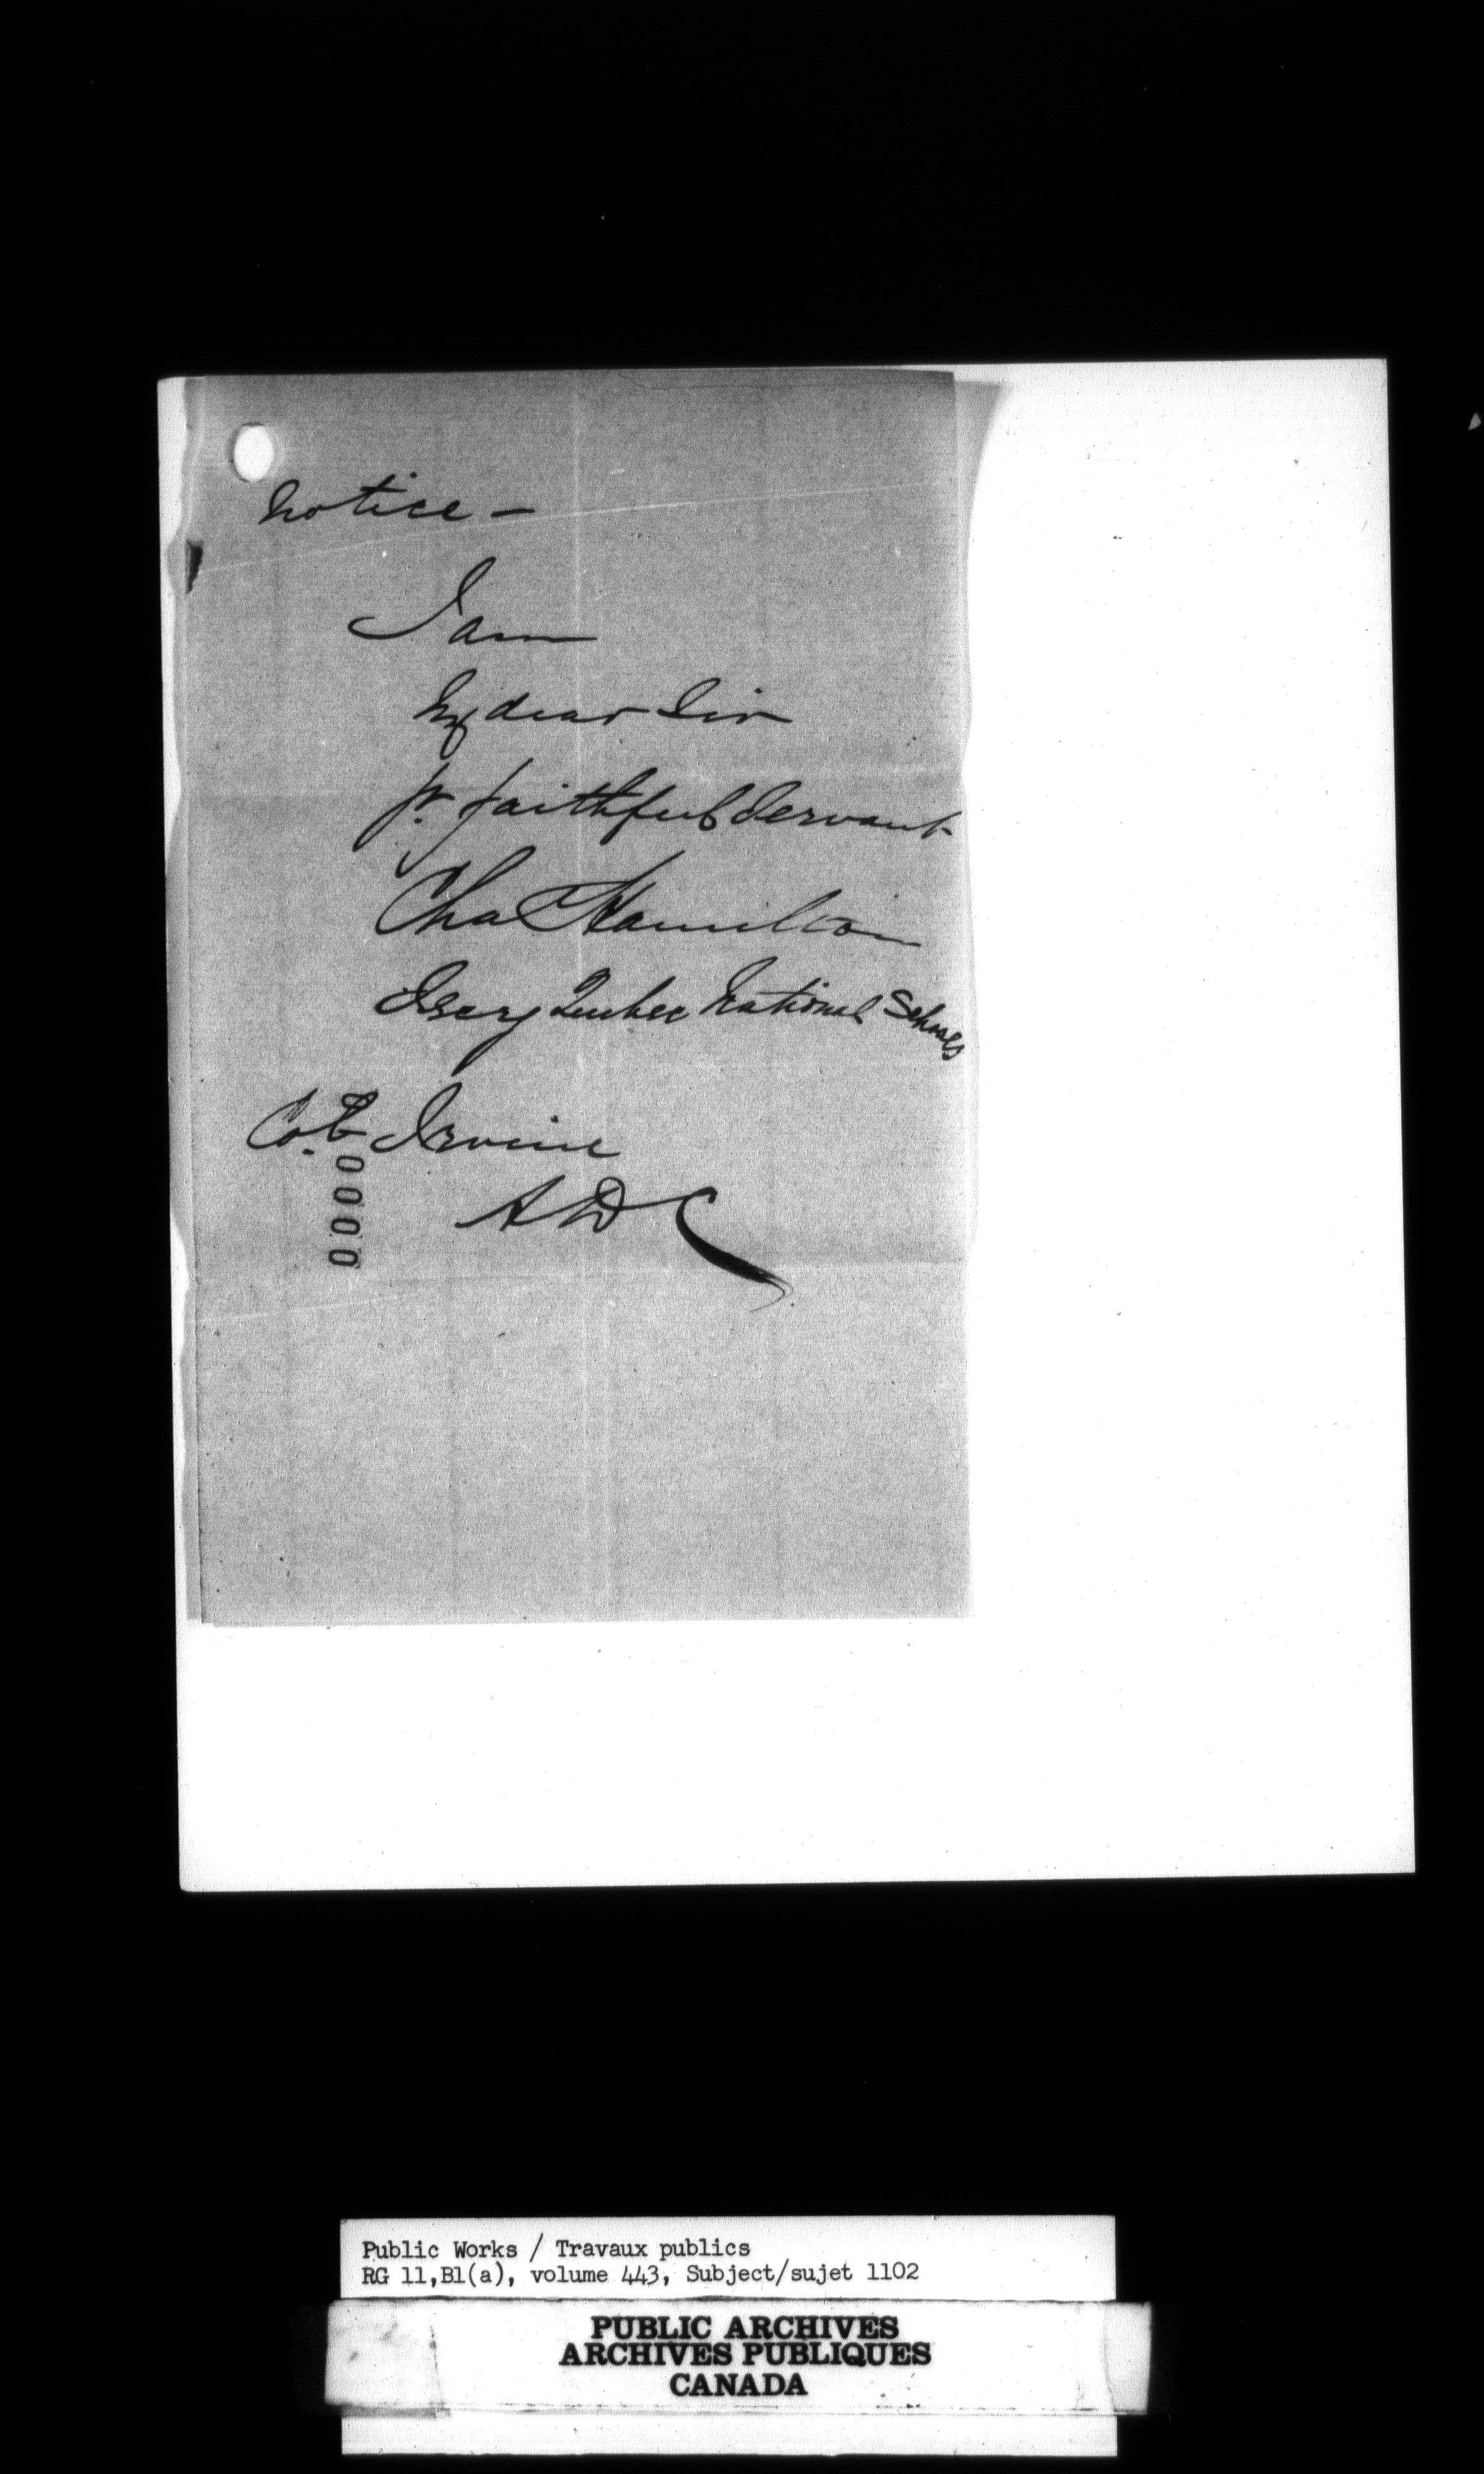 notice –
I am
My dear Sir
Yr. faithful Servant
Chas Hamilton
Secry Quebec National Schools
Col. Irvine
ADC
0000
Public Works / Travaux publics
RG 11,B1(a), volume 443, Subject/sujet 1102
PUBLIC ARCHIVES
ARCHIVES PUBLIQUES
CANADA